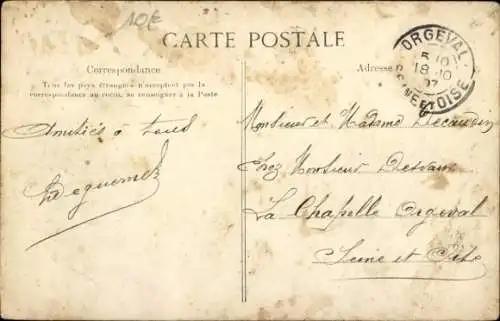 10€
CARTE POSTALE
ORGEVAL
SEINE ET OISE
5 10
18 10
07
Correspondance
Tous les pays étrangers n'acceptent pas la
correspondance au recto, se renseigner à la Poste
Adresse
Amitiés a tous
Monsieur et Madame
Chez Monsieur
La Chapelle Orgeval
Seine et Oise